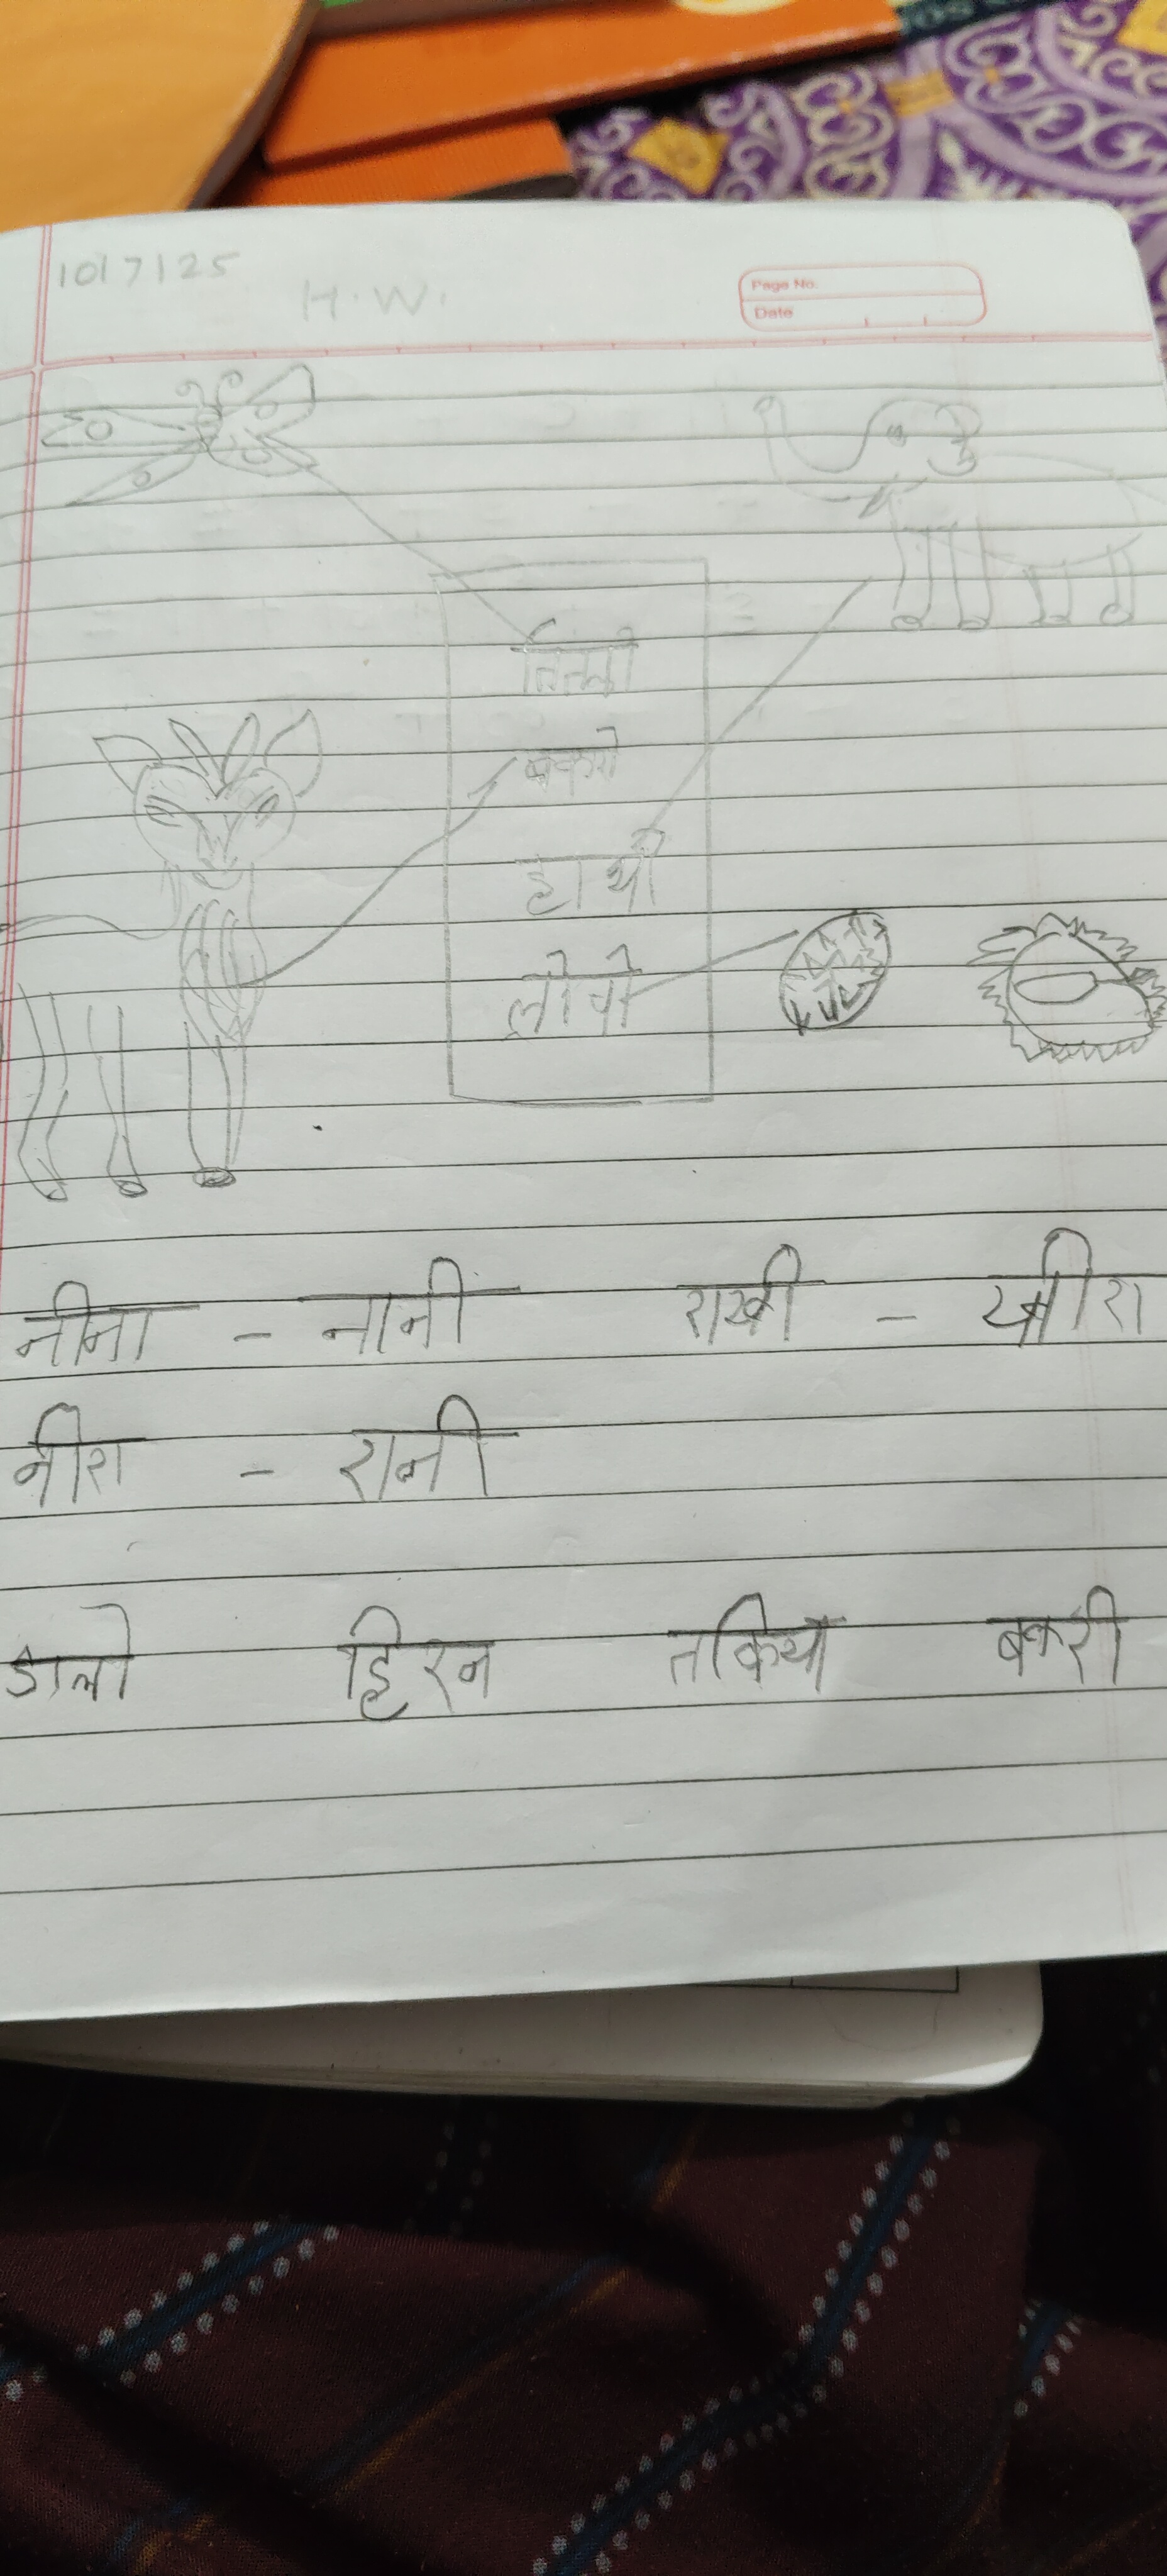 10/7/25
H.W.
Page No.
Date
तितली
बकरी
हाथी
लीची
नीना - नानी राखी - खीरा
नीरा - रानी
डाली हिरन तकिया बकरी